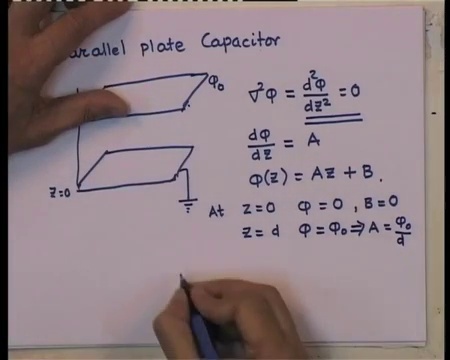 arallel plate Capacitor
φ₀
∇²φ = d²φ/dz² = 0
dφ/dz = A
φ(z) = Az + B.
z=0
At z=0 φ=0, B=0
z=d φ=φ₀ ⇒ A = φ₀/d